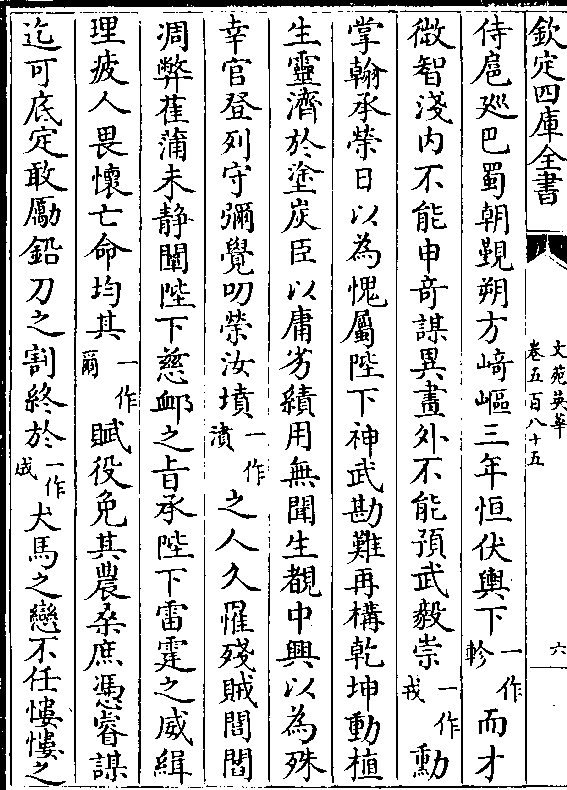 欽定四庫全書
文苑英華
卷五百八十五
六
侍扈廵巴蜀朝覲朔方﨑嶇三年恒伏輿下一作軫而才
微智淺内不能申竒謀異畫外不能預武毅崇一作戎勳
掌翰承榮日以為愧屬陛下神武勘難再構乾坤動植
生靈濟於塗炭臣以庸劣績用無聞生覩中興以為殊
幸官登列守彌覺叨榮汝墳一作濆之人久罹殘賊閭閻
凋弊萑蒲未静闡陛下慈䘏之㫖承陛下雷霆之威緝
理疲人畏懷亡命均其一作爾賦役免其農桑庶馮睿謀
迄可底定敢勵鉛刀之割終於一作戚犬馬之戀不任慺慺之